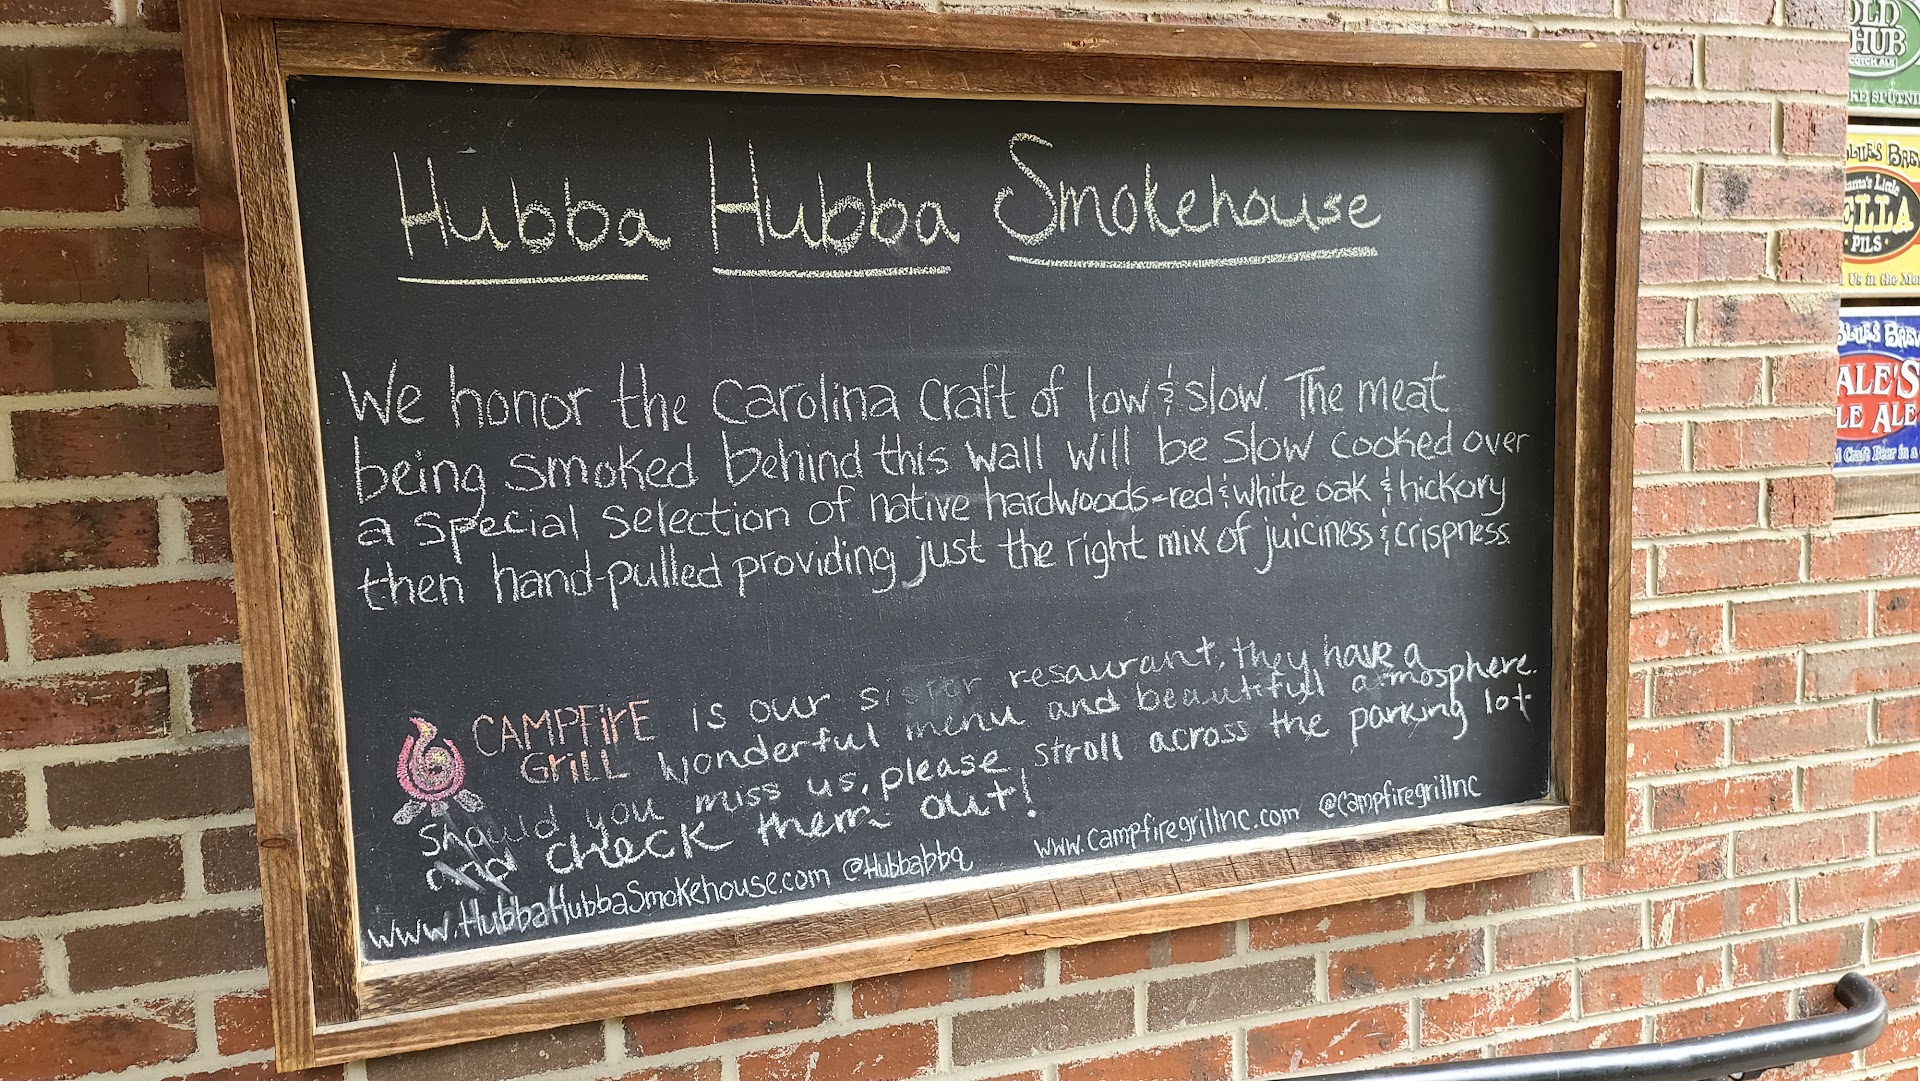 Hubba Hubba Smokehouse
We honor the Carolina craft of low & slow. The meat
being smoked behind this wall will be slow cooked over
a special selection of native hardwoods-red & white oak & hickory
then hand-pulled providing just the right mix of juiciness & crispness.
CAMPFirE GriLL is our sister resaurant, they have a
wonderful menu and beautiful atmosphere.
Should you miss us, please stroll across the parking lot
and check them out!
www.HubbaHubbaSmokehouse.com @Hubbabbq
www.CampfiregrillNC.com @CampfiregrillNC
OLD
HUB
SCOTCH ALE
PILS
Us in the
ALE'S
ALE
Craft Beer in a